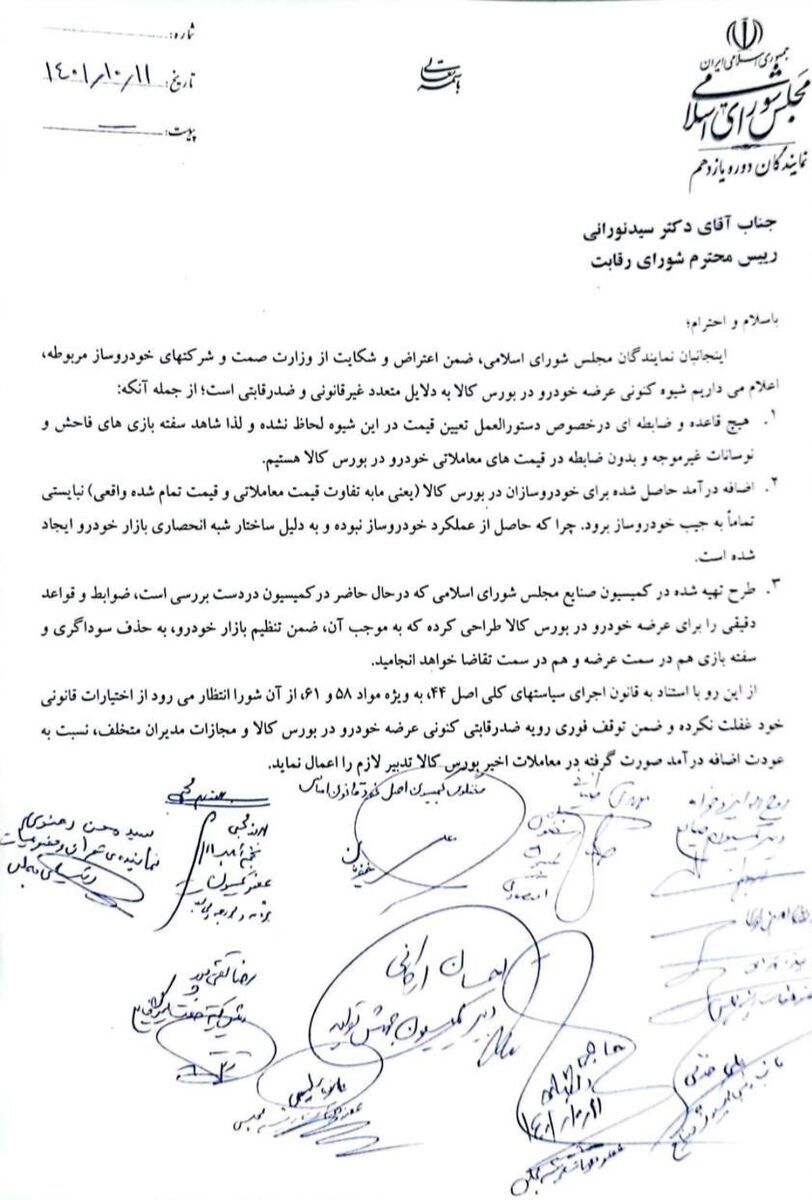 جمهوری اسلامی ایران
مجلس شورای اسلامی
نمایندگان دوره یازدهم
باسمه تعالی
شماره:
تاریخ: ۱۴۰۱/۱۰/۱۱
پیوست:
جناب آقای دکتر سیدنورانی
رییس محترم شورای رقابت
باسلام و احترام؛
اینجانبان نمایندگان مجلس شورای اسلامی، ضمن اعتراض و شکایت از وزارت صمت و شرکتهای خودروساز مربوطه،
اعلام می داریم شیوه کنونی عرضه خودرو در بورس کالا به دلایل متعدد غیرقانونی و ضدرقابتی است؛ از جمله آنکه:
۱. هیچ قاعده و ضابطه ای درخصوص دستورالعمل تعیین قیمت در این شیوه لحاظ نشده و لذا شاهد سفته بازی های فاحش و
نوسانات غیرموجه و بدون ضابطه در قیمت های معاملاتی خودرو در بورس کالا هستیم.
۲. اضافه درآمد حاصل شده برای خودروسازان در بورس کالا (یعنی مابه تفاوت قیمت معاملاتی و قیمت تمام شده واقعی) نبایستی
تماماً به جیب خودروساز برود. چرا که حاصل از عملکرد خودروساز نبوده و به دلیل ساختار شبه انحصاری بازار خودرو ایجاد
شده است.
۳. طرح تهیه شده در کمیسیون صنایع مجلس شورای اسلامی که درحال حاضر درکمیسیون دردست بررسی است، ضوابط و قواعد
دقیقی را برای عرضه خودرو در بورس کالا طراحی کرده که به موجب آن، ضمن تنظیم بازار خودرو، به حذف سوداگری و
سفته بازی هم در سمت عرضه و هم در سمت تقاضا خواهد انجامید.
از این رو با استناد به قانون اجرای سیاستهای کلی اصل ۴۴، به ویژه مواد ۵۸ و ۶۱، از آن شورا انتظار می رود از اختیارات قانونی
خود غفلت نکرده و ضمن توقف فوری رویه ضدرقابتی کنونی عرضه خودرو در بورس کالا و مجازات مدیران متخلف، نسبت به
عودت اضافه درآمد صورت گرفته در معاملات اخیر بورس کالا تدبیر لازم را اعمال نماید.
روح اله ایزدخواه
سید محسن دهنوی
نماینده‌ی تهران
عضو کمیسیون
احسان ارکانی
دبیر کمیسیون جهش تولید
رضا تقی پور
علی خضری